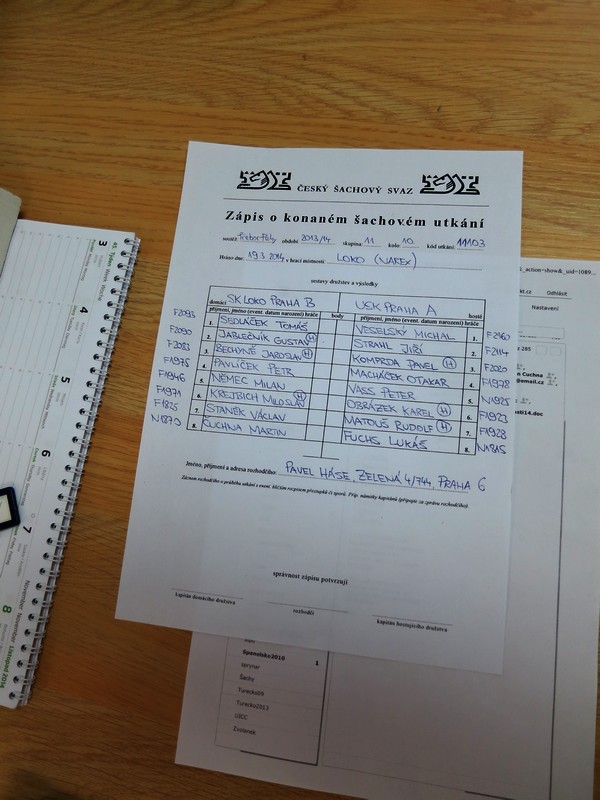 ČESKÝ ŠACHOVÝ SVAZ
Zápis o konaném šachovém utkání
soutěž období 2013/14 skupina: 11 kolo: 10 kód utkání: 11103
Hráno dne: 19.3.2014 v hrací místnosti LOKO (NAREX)
sestavy družstev a výsledky
domácí SK LOKO PRAHA B USK PRAHA A hosté
příjmení, jméno (event. datum narození) hráče body příjmení, jméno (event. datum narození) hráče
F2093 1. SEDLÁČEK TOMÁŠ VESELSKÝ MICHAL 1. F2160
F2090 2. JABLEČNÍK GUSTAV H STRAHL JIŘÍ 2. F2114
F2083 3. BECHYNĚ JAROSLAV H KOMPRDA PAVEL H 3. F2020
F1975 4. PAVLÍČEK PETR MACHÁČEK OTAKAR 4. F1978
F1946 5. NĚMEC MILAN VASS PETER 5. N1925
F1971 6. KREJBICH MILOSLAV H OBRÁZEK KAREL H 6. F1923
F1825 7. STANĚK VÁCLAV MATOUŠ RUDOLF H 7. F1928
N1870 8. CUCHNA MARTIN FUCHS LUKÁŠ 8. N1815
Jméno, příjmení a adresa rozhodčího: PAVEL HÁSE, ZELENÁ 4/744, PRAHA 6
správnost zápisu potvrzují
kapitán domácího družstva rozhodčí kapitán hostujícího družstva
Odhlásit
Nastavení
Spanelsko2010 1
Šachy
Turecko09
Turecko2013
Zvolenek
45. Týden
3
4
5
6
7
8
November Listopad 2014